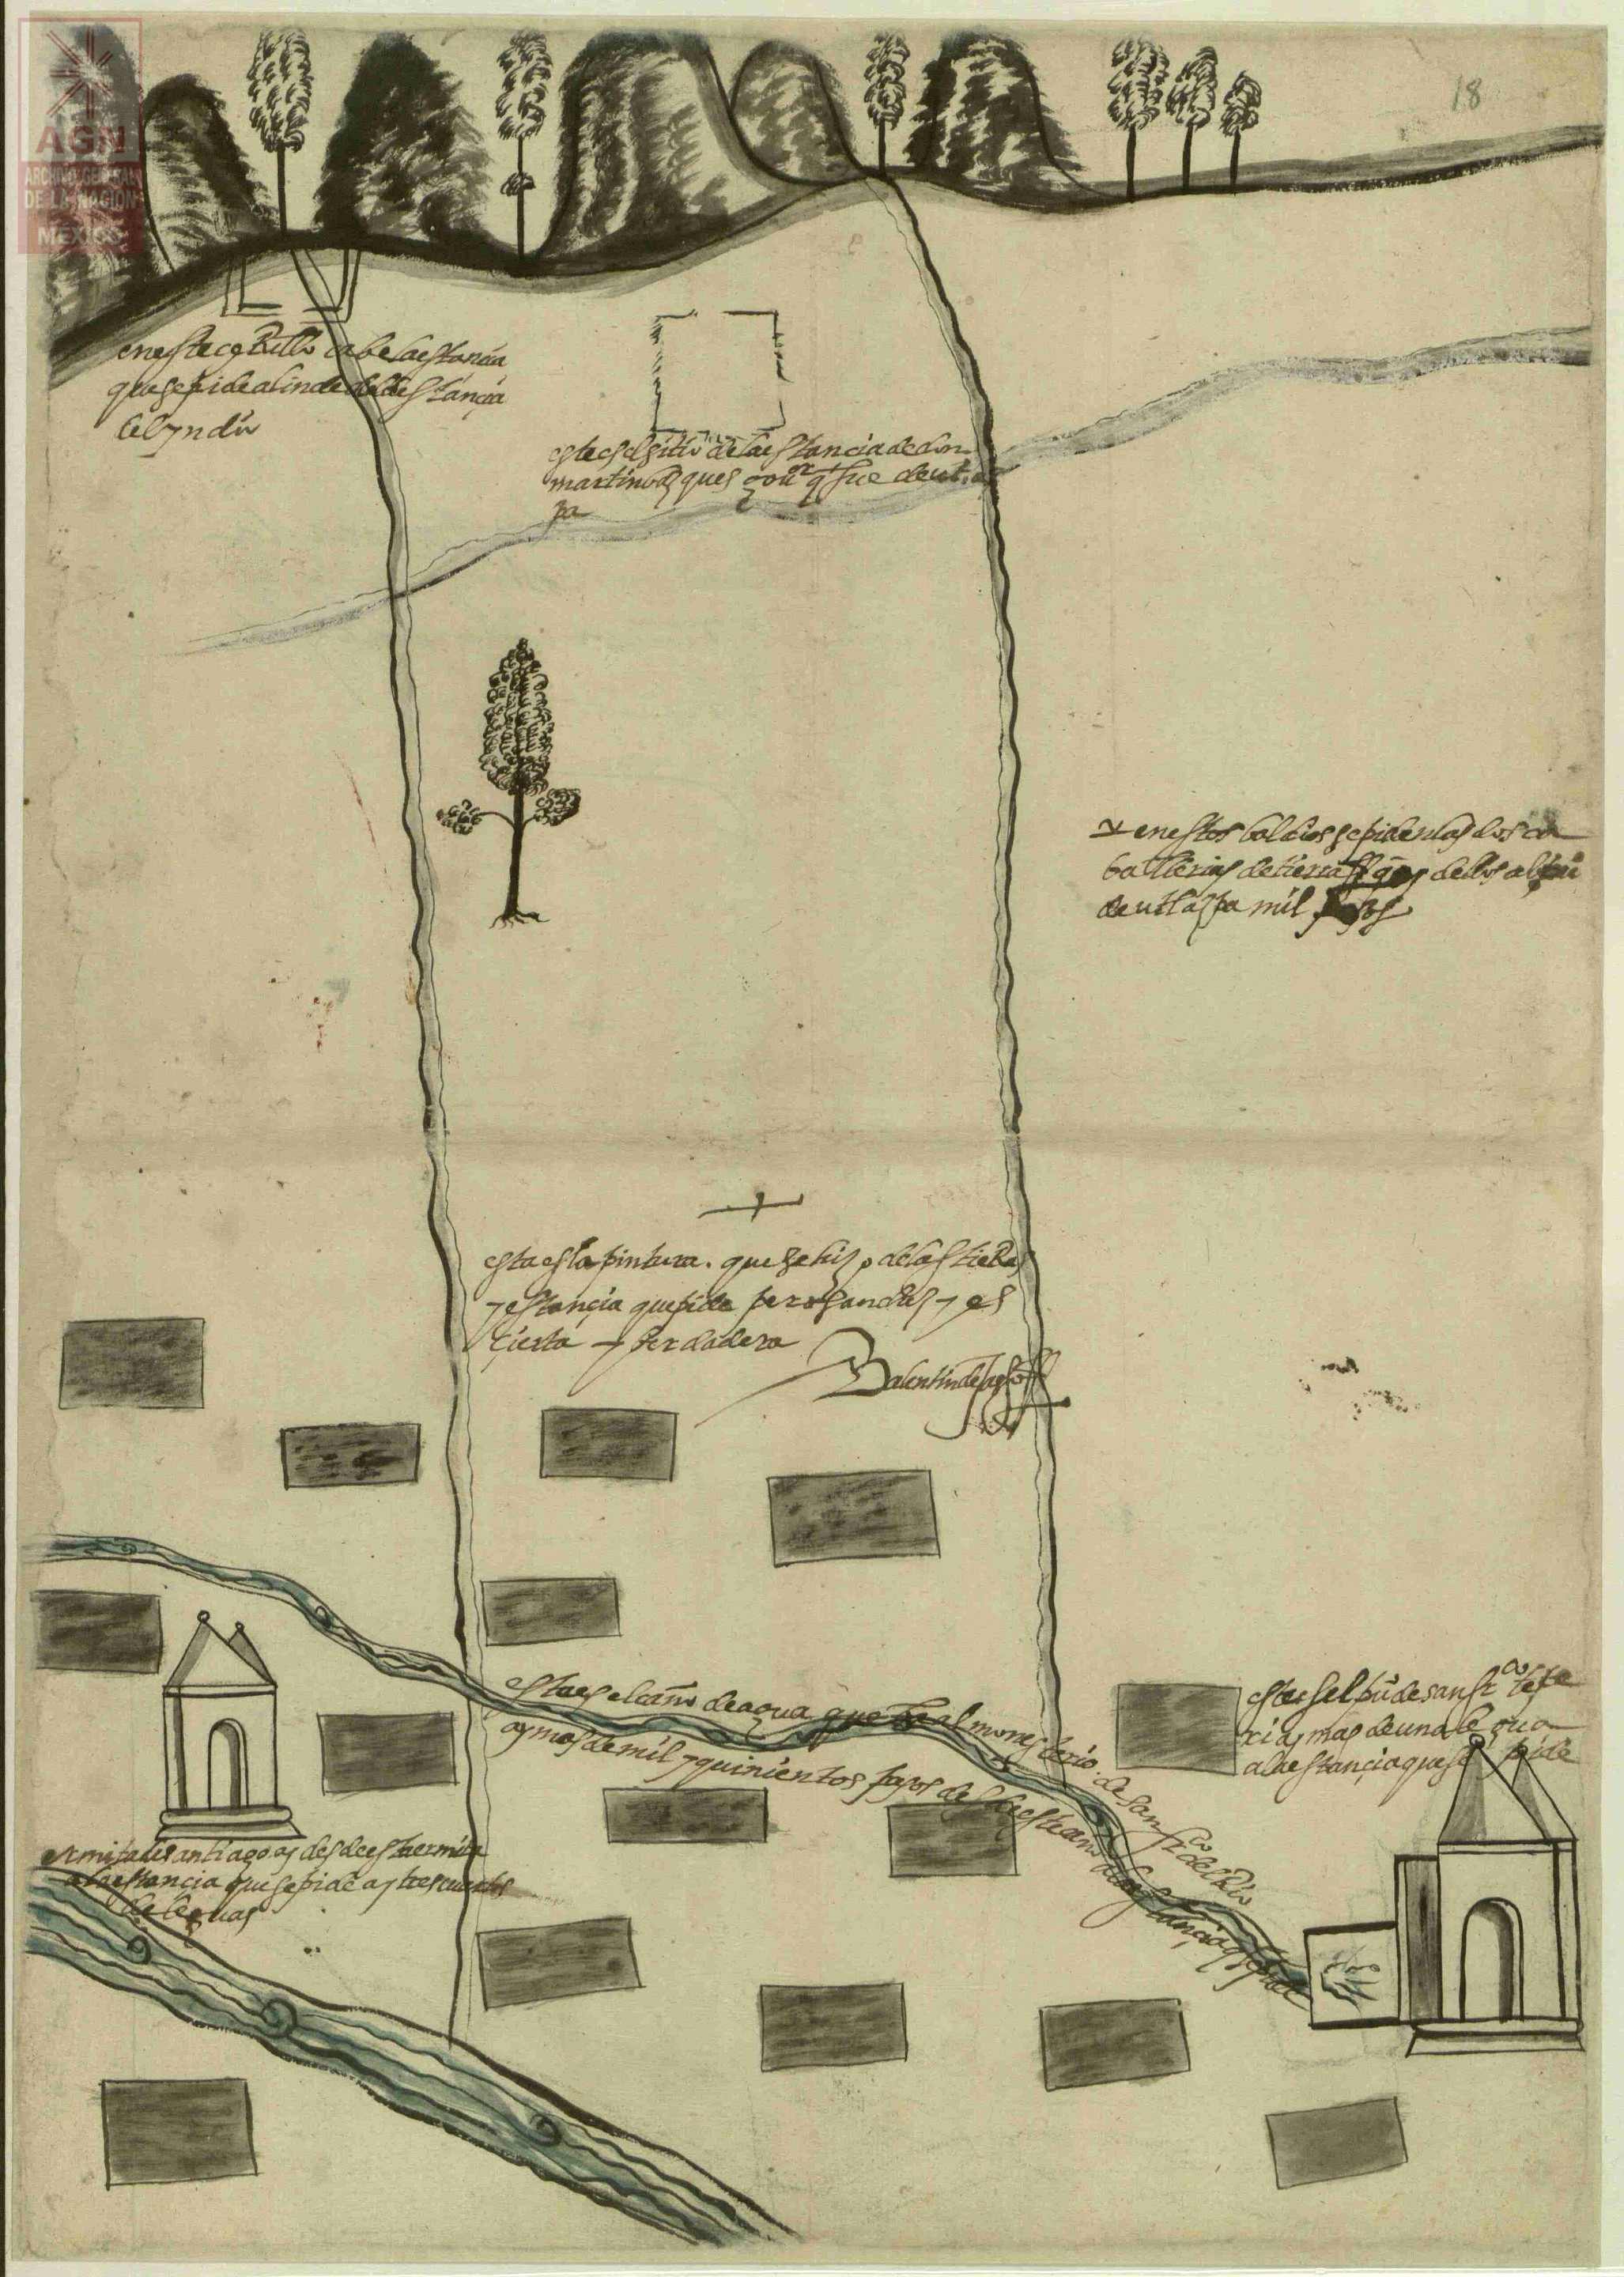 AGN
ARCHIVO GENERAL
DE LA NACION
MÉXICO
18
en este cerillo cabe la estancia
que se pide alinde de la estancia
del yndio
este es el sitio de la estancia de don
martin
pa
en estos baldios se piden las dos ca
ballerias de tierra ay dellos al
de utlaspa mil pasos
esta es la pintura. que se hizo de las tieRas
y estançia que pide pero sanches y es
çierta y berdadera
Balentin de
este es el caño de agua que ba al monesterio. de san fr^co del Rio
ay mas de mil y quinientos pasos desde este caño a la estançia q se pide
este es el pu^o de san fr^co tepe
xi ay mas de una legua
a la estançia que se pide
ermita de santiago ay desde esta ermita
a la estancia que se pide ay tres cuartos
de leguas